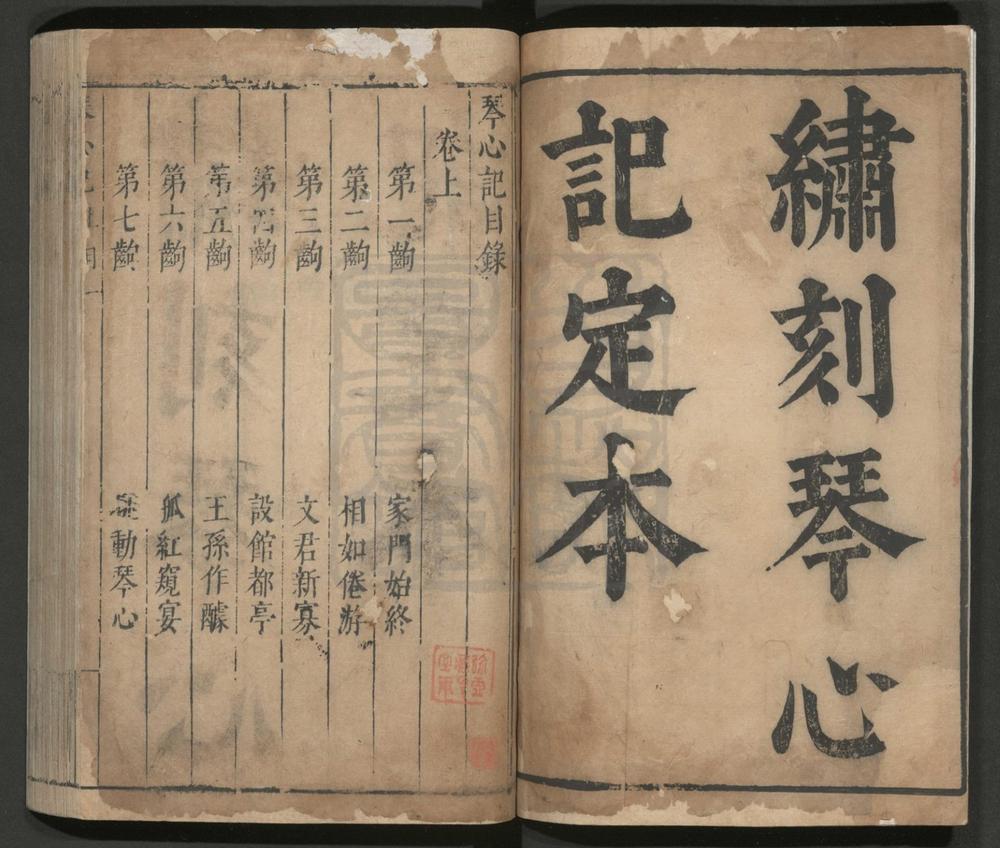 繡刻琴心
記定本
琴心記目錄
卷上
第一齣 家門始終
第二齣 相如倦游
第三齣 文君新寡
第四齣 設館都亭
第五齣 王孫作醵
第六齣 孤紅窺宴
第七齣 挑動琴心